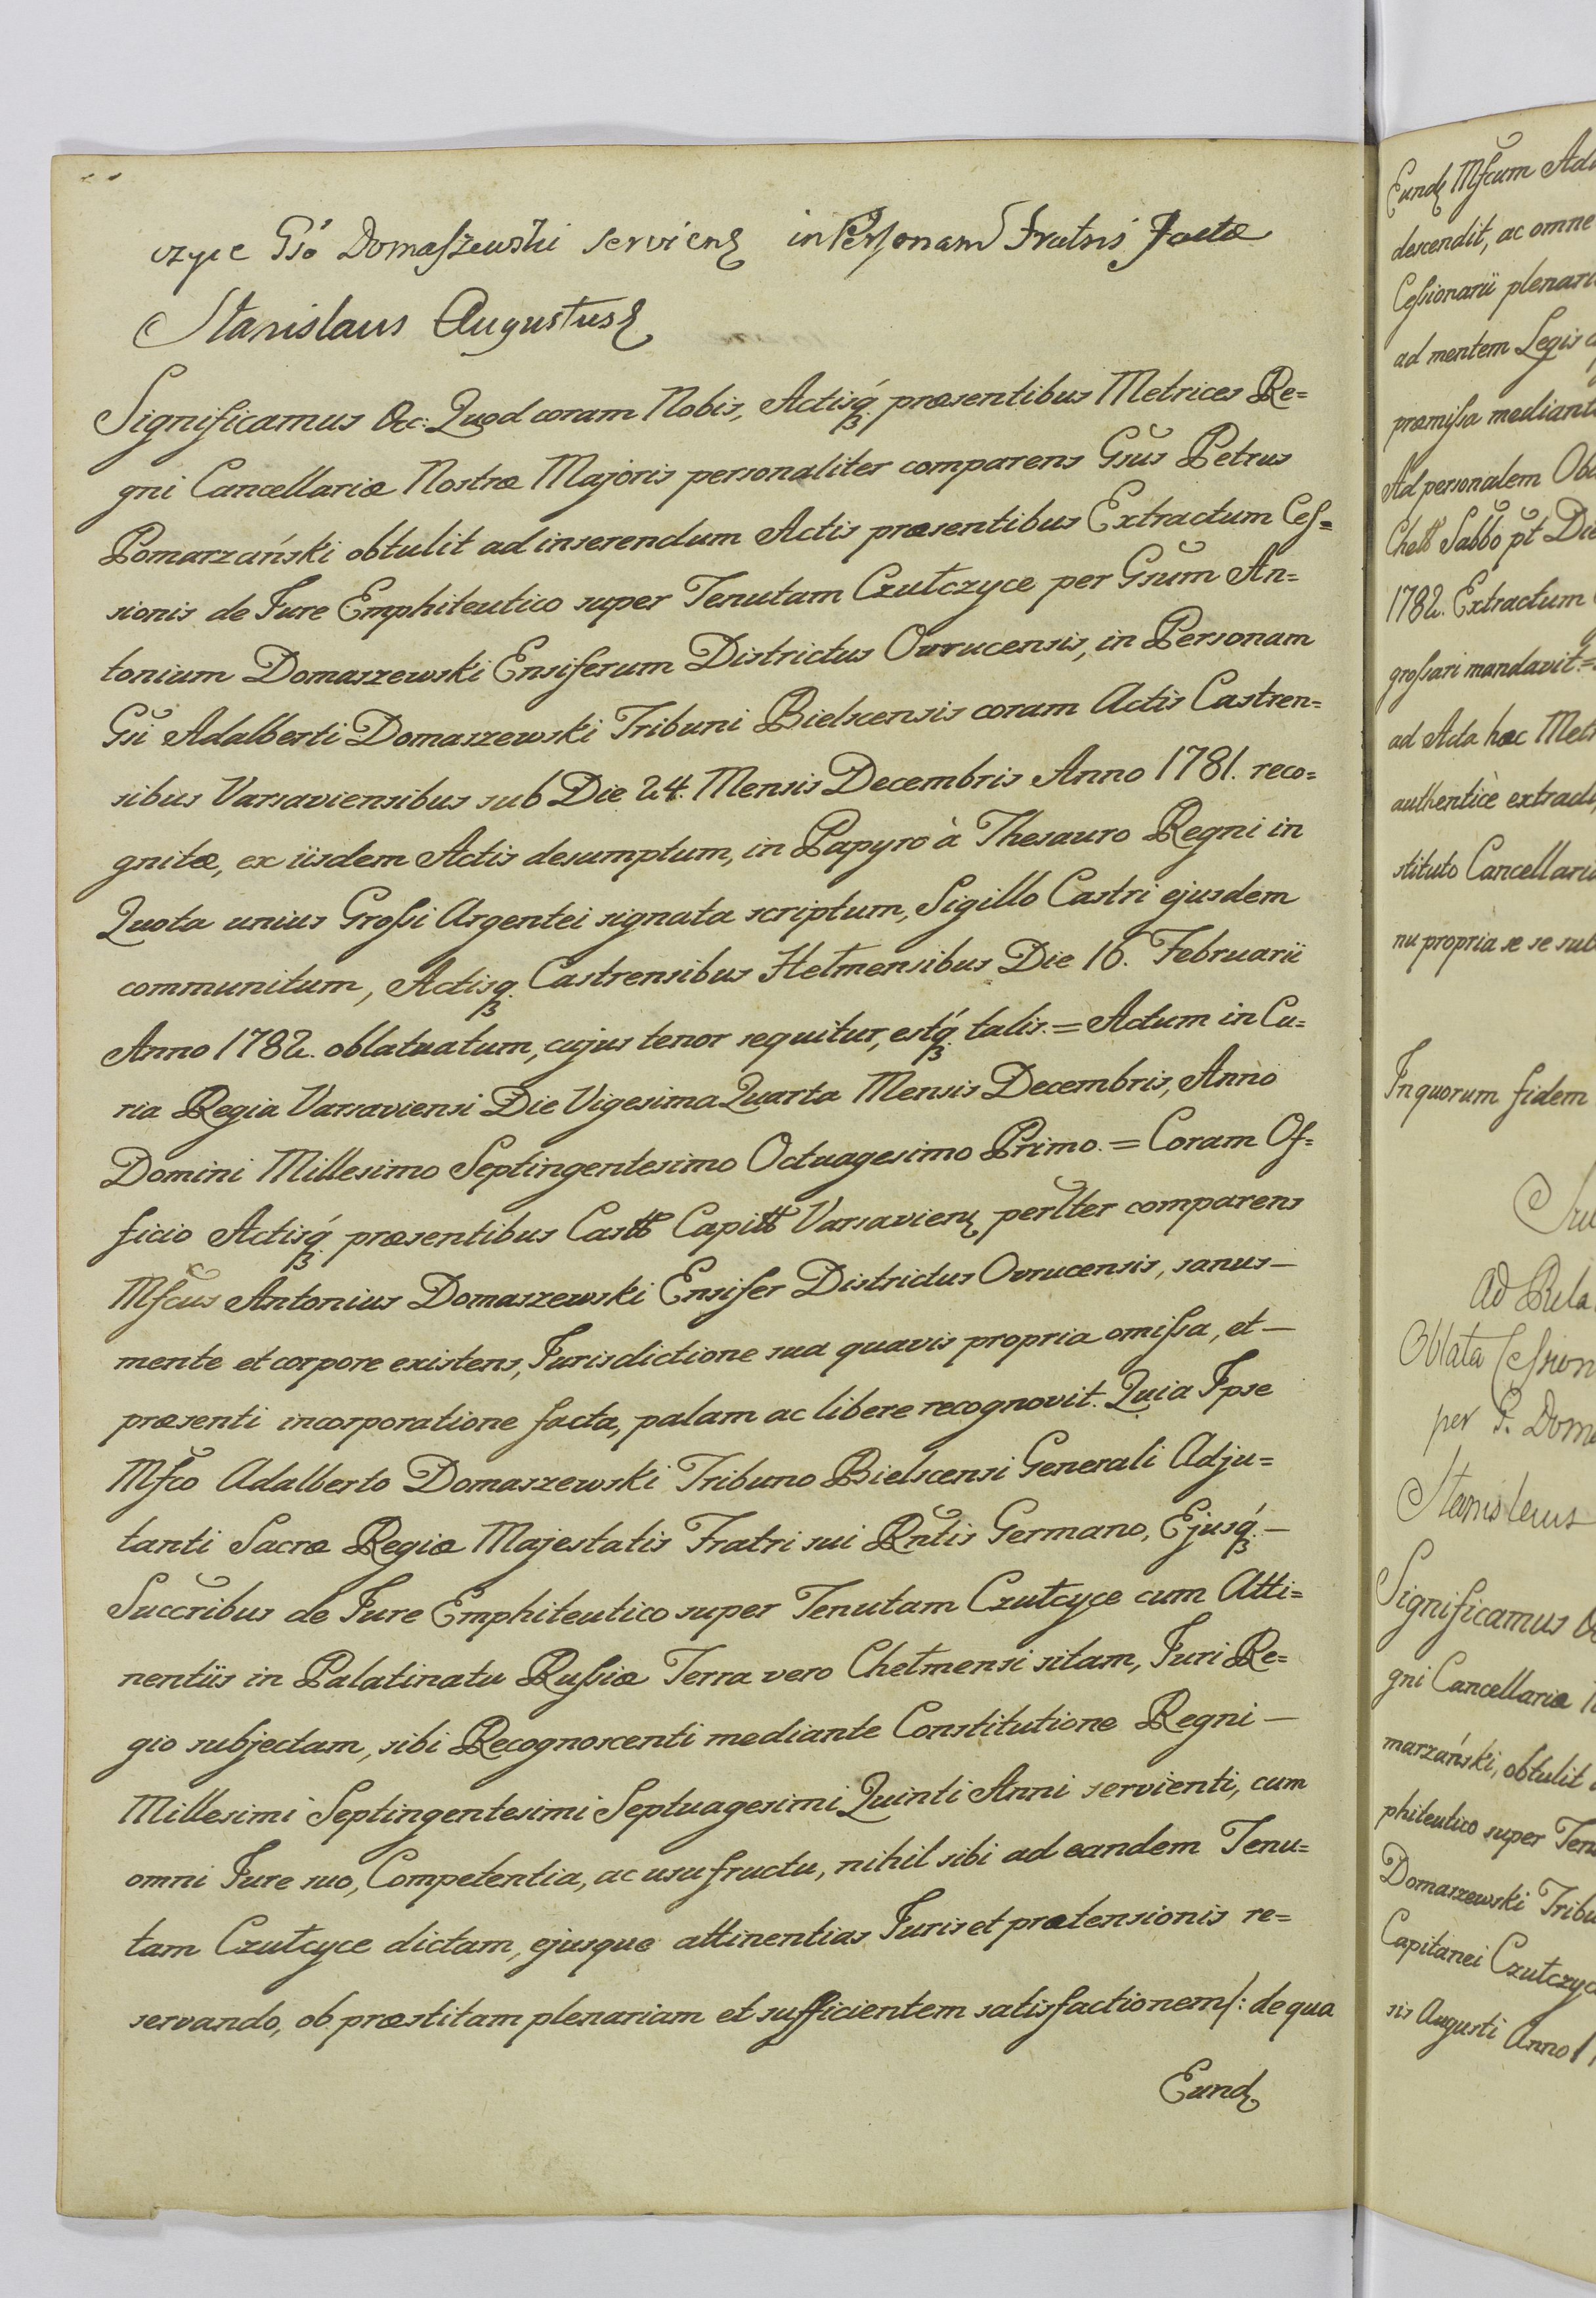 czyce Gsō Domaszewski servienꝫ in Personam Fratris factæ
Stanislaus Augustusꝫ
Significamus &c: Quod coram Nobis, Actisq́ꝫ præsentibus Metrices Re=
gni Cancellariæ Nostræ Majoris personaliter comparens Gsūs Petrus
Pomarzański obtulit ad inserendum Actis præsentibus Extractum Ces=
sionis de Jure Emphiteutico super Tenutam Czułczyce per Gsūm An=
tonium Domaszewski Ensiferum Districtus Ovrucensis, in Personam
Gsī Adalberti Domaszewski Tribuni Bielscensis coram Actis Castren=
sibus Varsaviensibus sub Die 24. Mensis Decembris Anno 1781. reco=
gnitæ, ex iisdem Actis desumptum, in Papyro à Thesauro Regni in
Quota unius Grossi Argentei signata scriptum, Sigillo Castri ejusdem
communitum, Actisqꝫ Castrensibus Hełmensibus Die 16. Februarii
Anno 1782. oblatuatum, cujus tenor sequitur, estq́ꝫ talis. = Actum in Cu=
ria Regia Varsaviensi Die Vigesima Quarta Mensis Decembris, Anno
Domini Millesimo Septingentesimo Octuagesimo Primo. = Coram Of=
ficio Actisq́ꝫ præsentibus Castt Capitt Varsavienꝫ perlter comparens
Mfcus Antonius Domaszewski Ensifer Districtus Ovrucensis, sanus —
mente et corpore existens, Jurisdictione sua quavis propria omissa, et —
præsenti incorporatione facta, palam ac libere recognovit. Quia Ipse
Mfco Adalberto Domaszewski Tribuno Bielscensi Generali Adju=
tanti Sacræ Regiæ Majestatis Fratri sui Rntis Germano, Ejusq́ꝫ —
Succribus de Jure Emphiteutico super Tenutam Czułcyce cum Atti=
nentiis in Palatinatu Russiæ Terra vero Chełmensi sitam, Juri Re=
gio subjectam, sibi Recognoscenti mediante Constitutione Regni —
Millesimi Septingentesimi Septuagesimi Quinti Anni servienti, cum
omni Jure suo, Competentia, ac usufructu, nihil sibi ad eandem Tenu=
tam Czułcyce dictam, ejusque attinentias Juris et prætensionis re=
servando, ob præstitam plenariam et sufficientem satisfactionem /: de qua
Eundꝫ
Eundꝫ Mfcum Ada
descendit, ac omne
Cessionarii plenari
ad mentem Legis
præmissa mediant
Ad personalem Obl
Chełł Sabbo pt Die
1782. Extractum
grossari mandavit =
ad Acta hæc Met
authentìcè extradi
stituto Cancellari
nu propria se se sub
In quorum fidem
Ad Rela
Oblata Cession
per G. Doma
Stanislaus
Significamus &
gni Cancellariæ N
marzański, obtulit
phiteutico super Ten
Domaszewski Tribu
Capitanei Czułczyc
sis Augusti Anno 1